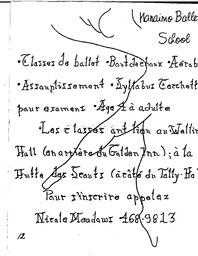 Nanaimo Ballet
School
• Classes de ballet • Bout de choux • Aérob
• Assouplissement • Syllabus Cecchetti
pour examens • Age 4 à adulte
• Les classes ont lieu au Wellin
Hall (en arrière du Golden Inn); à la
Hutte des Scouts (à côté du Tally-Ho
Pour s'inscrire appelez
Nicole Meadows 468-9823
12